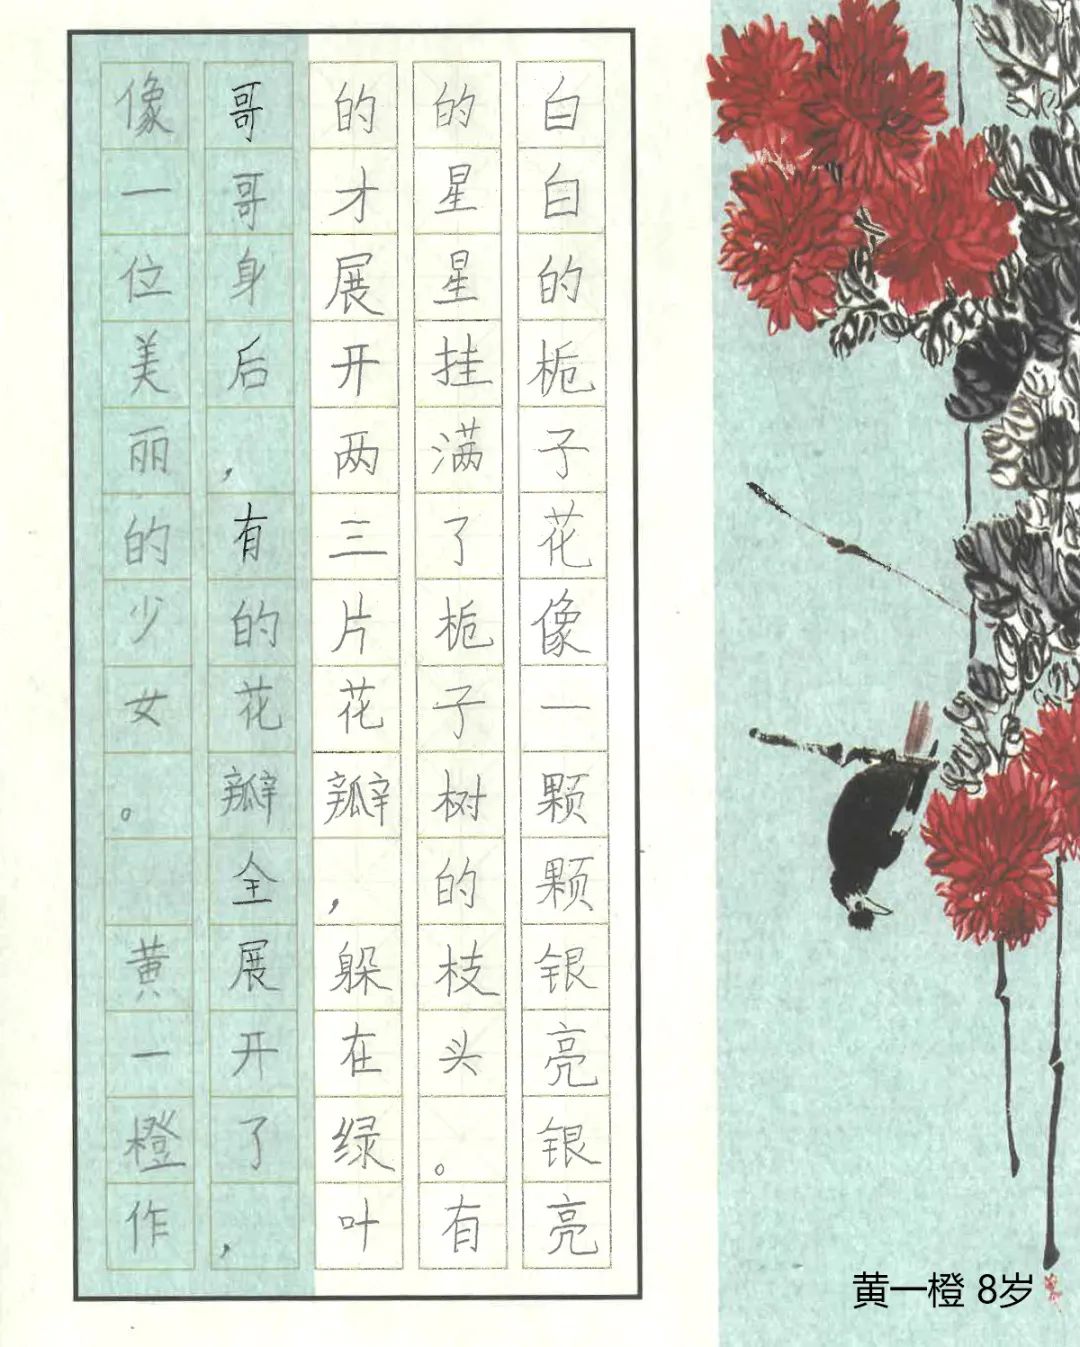 白白的栀子花像一颗颗银亮银亮
的星星挂满了栀子树的枝头。有
的才展开两三片花瓣，躲在绿叶
哥哥身后，有的花瓣全展开了，
像一位美丽的少女。 黄一橙作
黄一橙 8岁